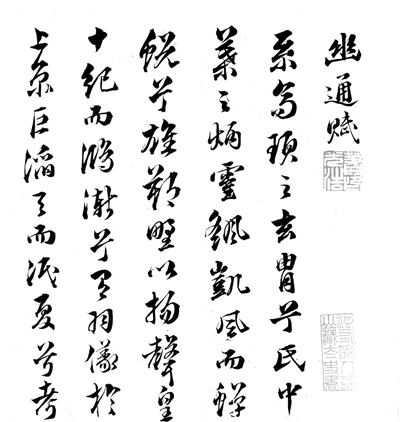 幽通賦
系高頊之玄胄兮氏中
葉之炳靈颻凱風而蟬
蛻兮雄朔野以揚聲皇
十紀而鴻漸兮有羽儀於
上京巨滔天而泯夏兮考